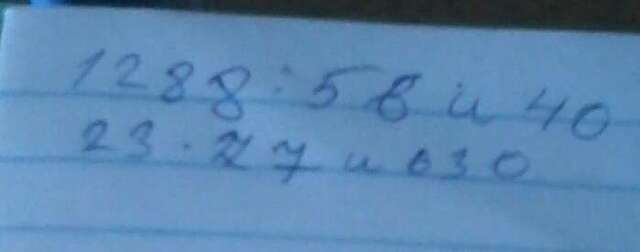 1288:56 и 40
23·27 и 630